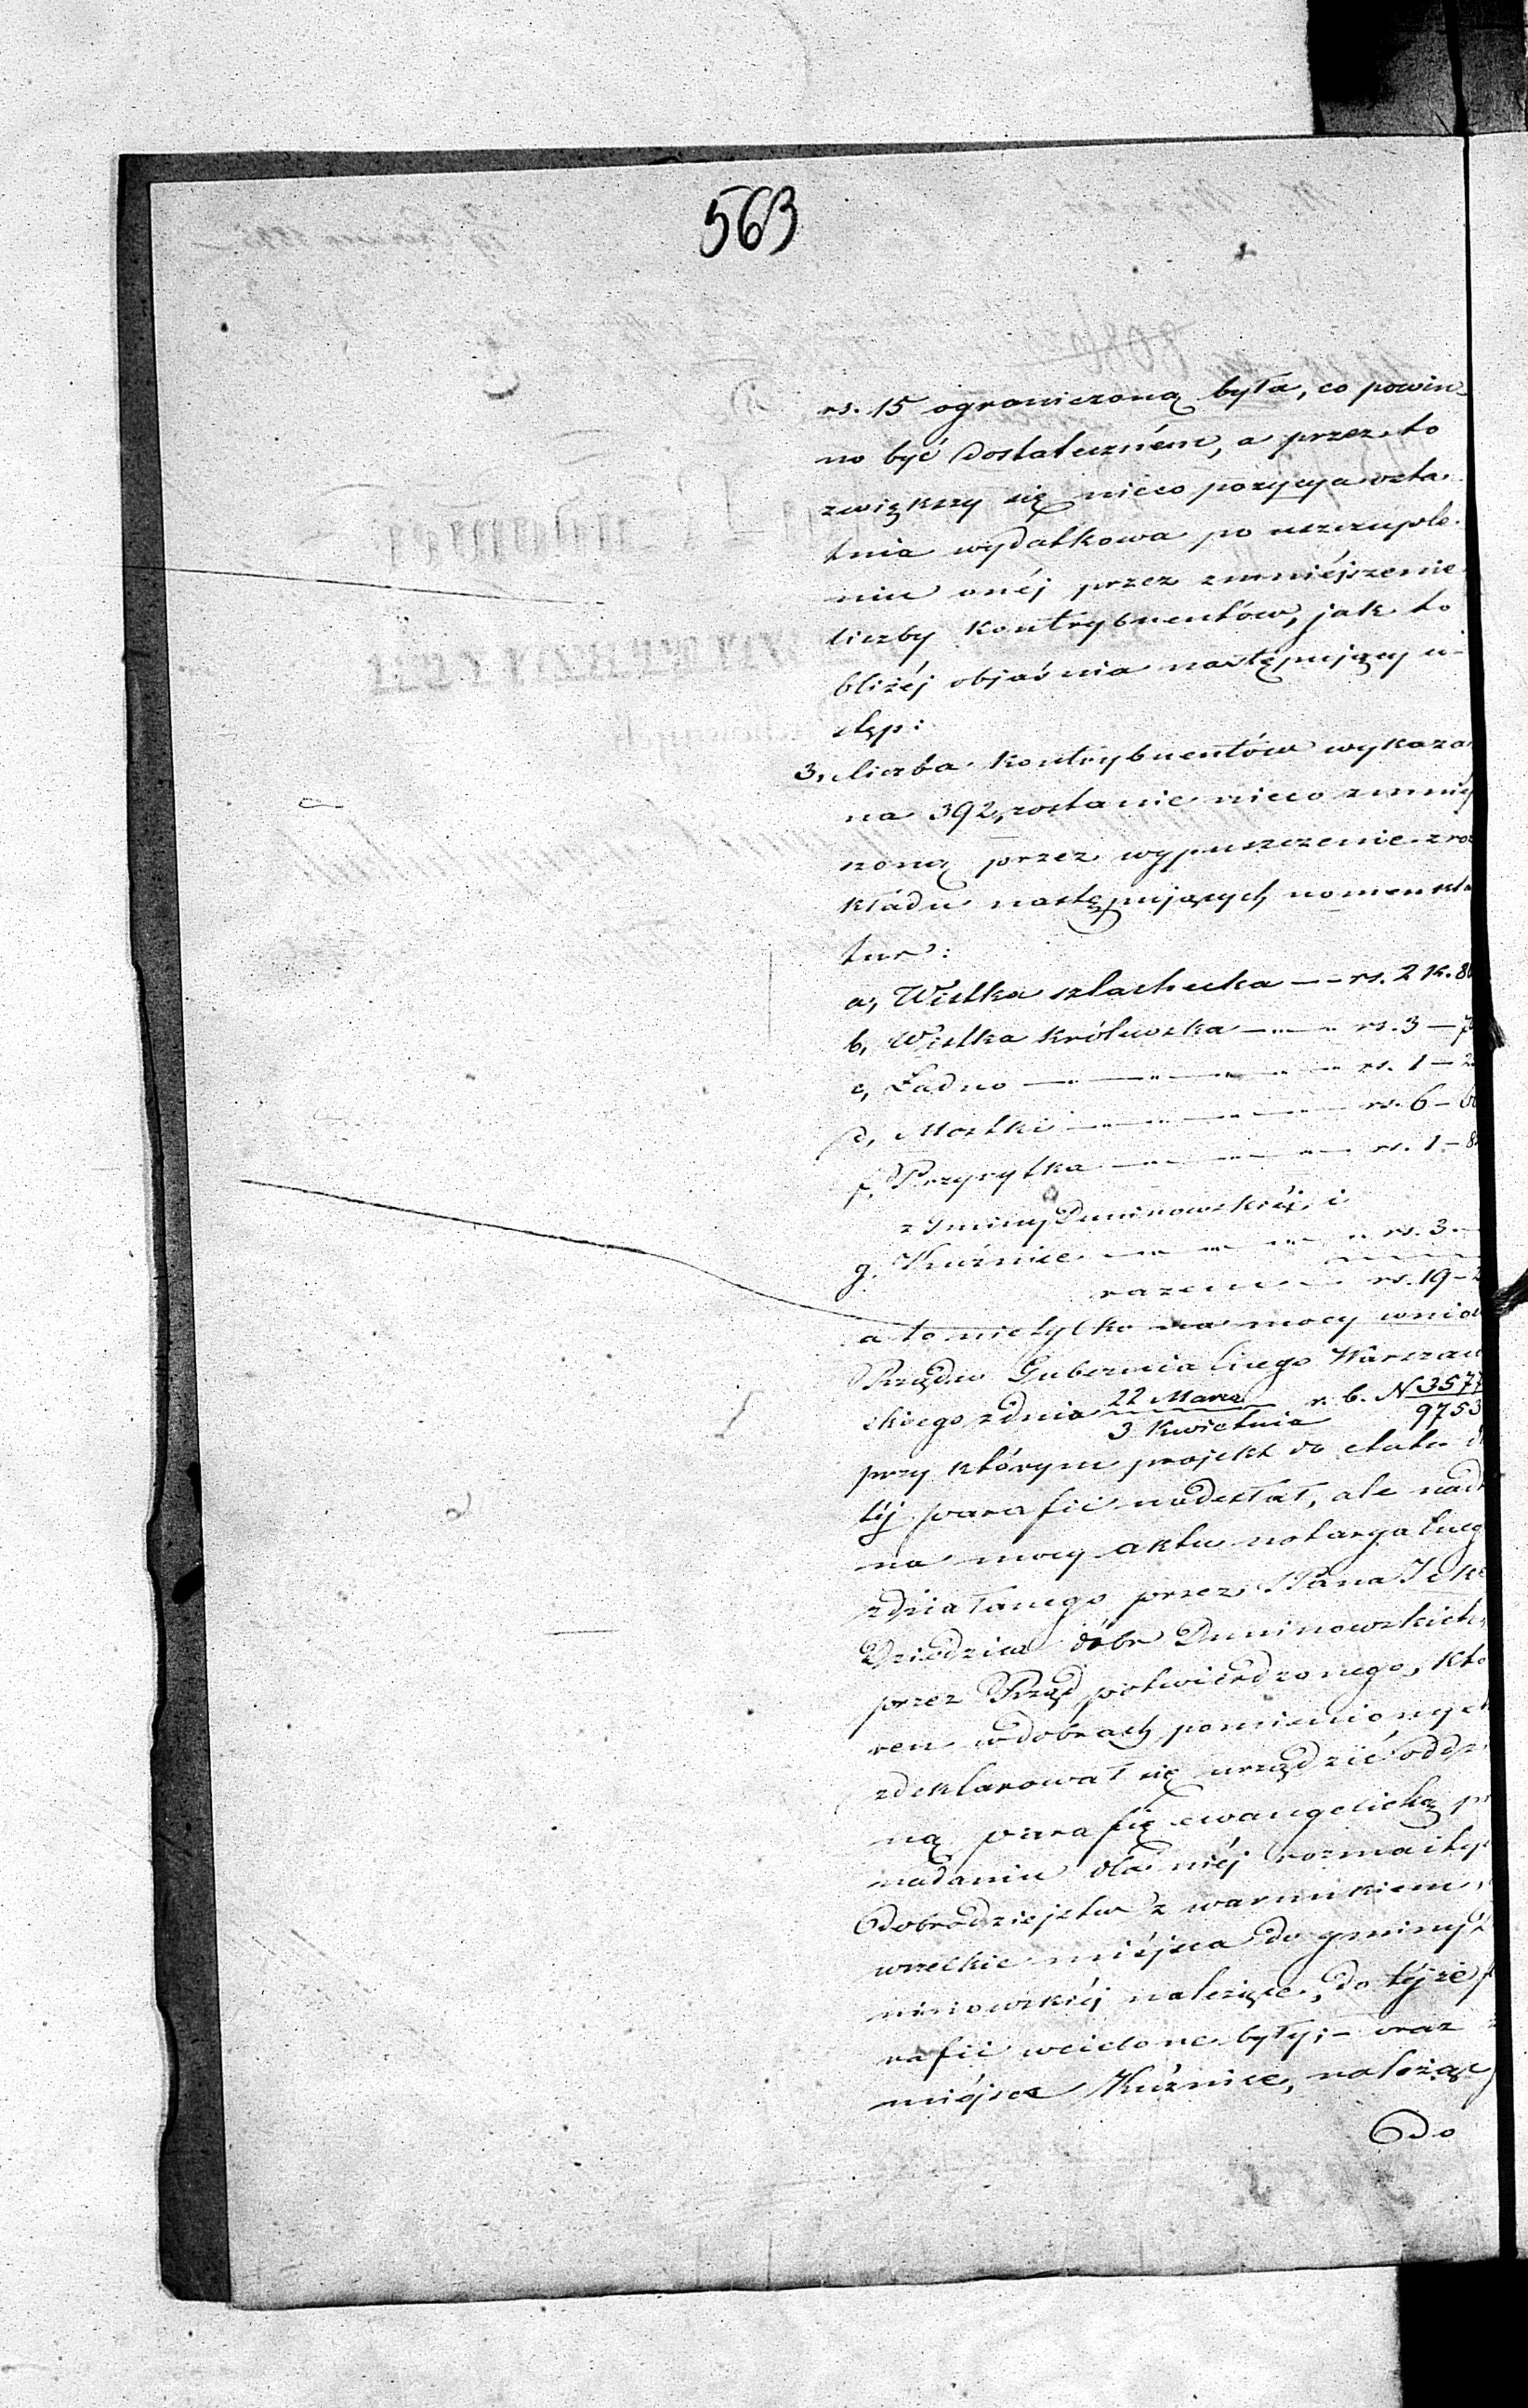 563
rs. 15 ograniczoną była, co powin-
no być dostateczném, a przez to
zwiększy się nieco pozycya osta-
tnia wydatkowa po uszczuple-
niu onéj przez zmniéjszenie
liczby kontrybuentów, jak to
bliżéj objaśnia następujący u-
stęp:
3, liczba kontrybuentów wykaza
na 392, zostanie nieco zmniej
szoną przez wypuszczenie z roz
kładu następujących nomenkla
tur:
a, Wistka szlachecka — rs. 2 k. 8
b, Wistka królewska — rs. 3 — 7
c, Ładno — rs. 1 — 2
d, Mostki — rs. 6 — 6
f, Przyrytka — rs. 1 — 8
z Gminy Duninowskiéj, i
g. Kuźnice — rs. 3. —
razem — rs. 19 — 2
a to nietylko na mocy wnios
Rządu Gubernialnego Warszaw
skiego z dnia 22 Marca / 3 Kwietnia r. b. N 3577 / 9753
przy którym projekt do etatu d
téj parafii nadesłał, ale nadt
na mocy aktu notaryalneg
zdziałanego przez Pana Ike
Dziedzica dóbr Duninowskich,
przez Rząd potwierdzonego, któ
ren w dobrach pomienionych
zdeklarował się urządzić oddzi
ną parafię ewangelicką pr
nadaniu dla niéj rozmaityc
dobrodziejstw z warunkiem,
wszelkie miéjsca do gminy D
ninowskiéj należące, do téjże p
rafii wcielone były; — oraz
miéjsce Kuźnice, należąc
do